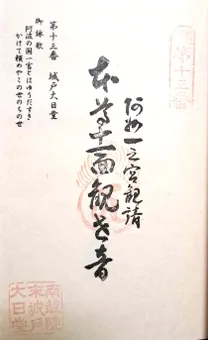 第十三番
第十三番 城戸大日堂
御詠歌
阿波の国一宮とはゆうだすき
かけて頼めやこのせのちのせ
阿州一之宮勧請
本尊十一面観世音
末城戸
大日堂